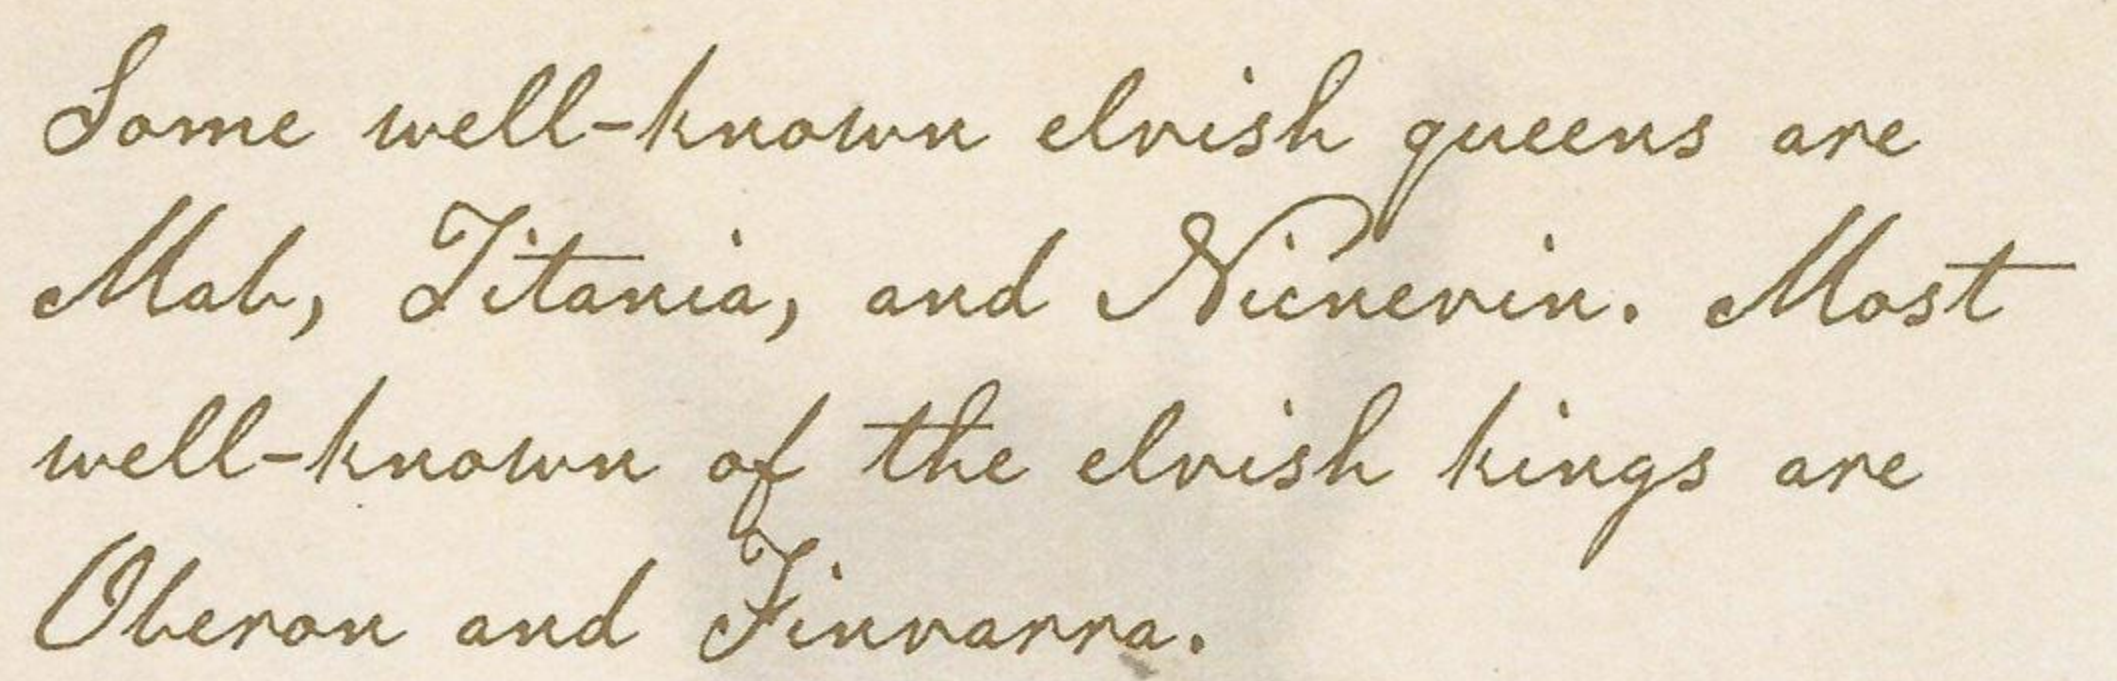 Some well-known elvish queens are
Mab, Titania, and Nicnevin. Most
well-known of the elvish kings are
Oberon and Finvarra.